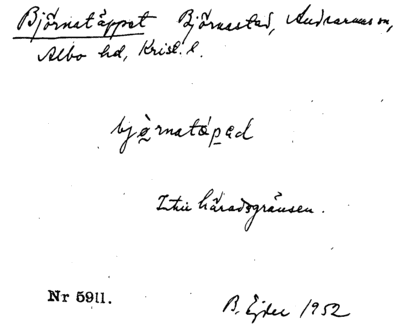 Björnatäppet Björnastad, Andrarums sn,
Albo hd, Krist. l.
björnatäpad
Invid häradsgränsen.
Nr 5911.
B. Ejder 1952